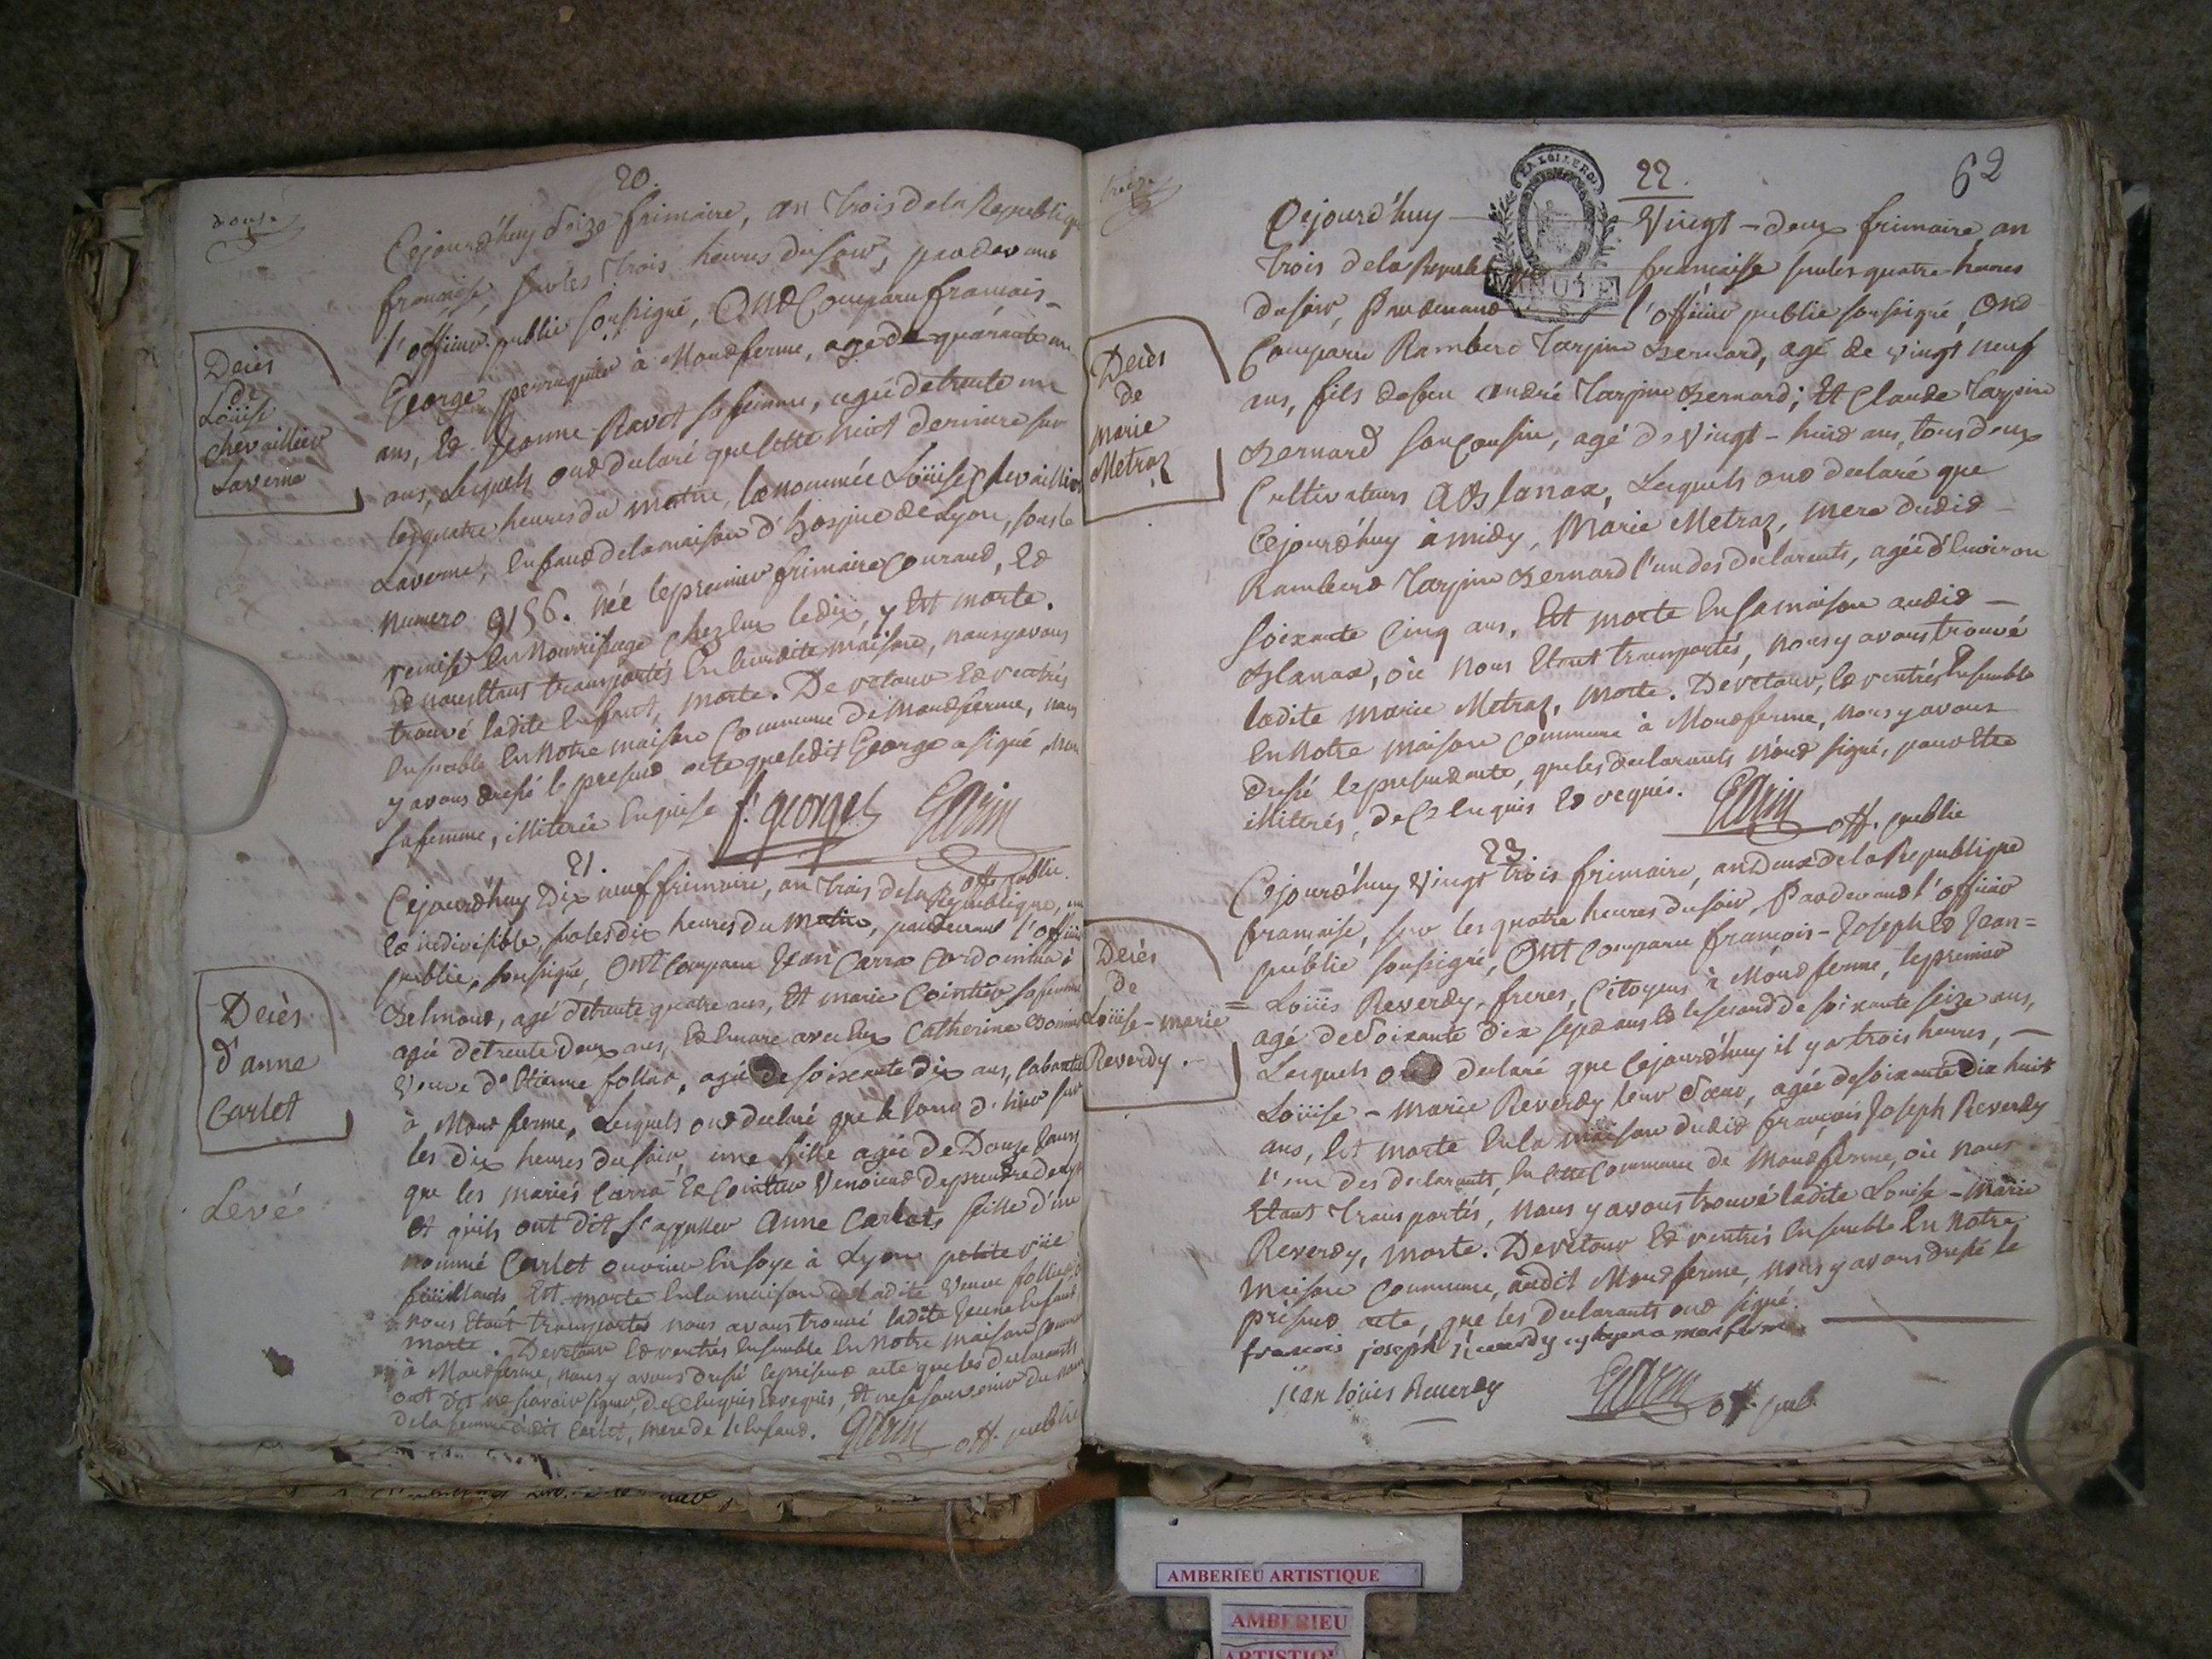 douze
20.
Cejourd'huy seize frimaire, an trois de la Republique
française, sur les trois heures du soir, pardevant
l'officier public soussigné, Ont Comparu françois-
George perruquier à Montferme, agé de quarante un
ans, et Jeanne Ravet sa femme, agée de trente un
ans, Lesquels ont declaré que cette nuit derniere sur
les quatre heures du matin, la nommée Loüise Chevaillier
Laverne, Enfant de la maison d'hospice de Lyon, sous le
numero 9156. née le premier frimaire Courant, et
remise En nourrissage chez Eux le dix, y Est morte.
Et nous Etant transportés En leurdite maison, nous y avons
trouvé ladite Enfant, morte. De retour et rentrés
Ensemble En notre maison Commune de Montferme, nous
y avons dressé le present acte que ledit George a signé, non
sa femme, illiterée Enquise
f. george
Garin
off. public.
Deiès
de
Loüise
Chevaillier
Laverne
21.
Cejourd'huy Dix neuf frimaire, an trois de la Republique, une
et indivisible, sur les dix heures du matin, pardevant l'officier
public, soussigné, Ont Comparu Jean Carra Cordonnier à
Belmont, agé de trente quatre ans, Et marie Cointier sa femme
agée de trente deux ans, et Encore avec Eux Catherine
Veuve d'Etienne follier, agée de soixante dix ans,
à Montferme, Lesquels ont declaré que le jour d'hier sur
les dix heures du soir, une fille agée de Douze jours
que les mariés Carra et Cointier Venoient de prendre de Lyon
Et qu'ils ont dit s'appeller Anne Carlet, fille d'un
nommé Carlet ouvrier En soye à Lyon petite rüe
feüillants Est morte En la maison de ladite Veuve follier, où
nous Etant transportés nous avons trouvé ladite jeune Enfant
morte. De retour et rentrés Ensemble En notre maison commune
à Montferme, nous y avons dressé le present acte que les declarants
ont dit ne sçavoir signer, de ce Enquis et requis, Et ne se souvenir du nom
de la femme dudit Carlet, mere de l'Enfant.
Garin off. public
Deiès
d'anne
Carlet
Levé
treize
22.
62
MINUTE
Cejourd'huy Vingt-deux frimaire, an
trois de la Republique française sur les quatre heures
du soir, Pardevant l'officier public soussigné, Ont
Comparu Rambert Tarpin Bernard, agé de vingt neuf
ans, fils de feu andré Tarpin Bernard; Et Claude Tarpin
Bernard son Cousin, agé de Vingt-huit ans, tous deux
Cultivateurs A Blanaz, Lesquels ont declaré que
Cejourd'huy à midy, Marie Metraz, mere dudit
Rambert Tarpin Bernard l'un des declarants, agée d'Environ
soixante Cinq ans, Est morte En sa maison audit
Blanaz, où nous Etant transportés, nous y avons trouvé
ladite marie Metraz, morte. De retour, et rentrés Ensemble
En notre maison commune à Montferme, nous y avons
dressé le present acte, que les declarants n'ont signé, pour Etre
illiterés, de ce Enquis et requis.
Garin off. public
Deiès
de
marie
Metraz
23
Cejourd'huy Vingt trois frimaire, an Deux de la Republique
française, sur les quatre heures du soir, Pardevant l'officier
public soussigné, Ont Comparu françois-Joseph et Jean=
=Loüis Reverdy, freres, Citoyens à Montferme, le premier
agé de Soixante dix sept ans et le second de soixante seize ans,
Lesquels ont declaré que Cejourd'huy il y a trois heures,
Loüise-marie Reverdy leur Sœur, agée de soixante Dix huit
ans, Est morte En la maison dudit françois Joseph Reverdy
l'un des declarants, En cette Commune de Montferme, où nous
Etant transportés, nous y avons trouvé ladite Louise-Marie
Reverdy, morte. De retour et rentrés Ensemble En notre
maison Commune, audit Montferme, nous y avons dressé le
present acte, que les declarants ont signé.
francois joseph reverdy cytoyen a monferme
jean loüis Reverdy
Garin off. pub.
Deiès
de
Loüise-marie
Reverdy.
AMBERIEU ARTISTIQUE
AMBERIEU
ARTISTIQU